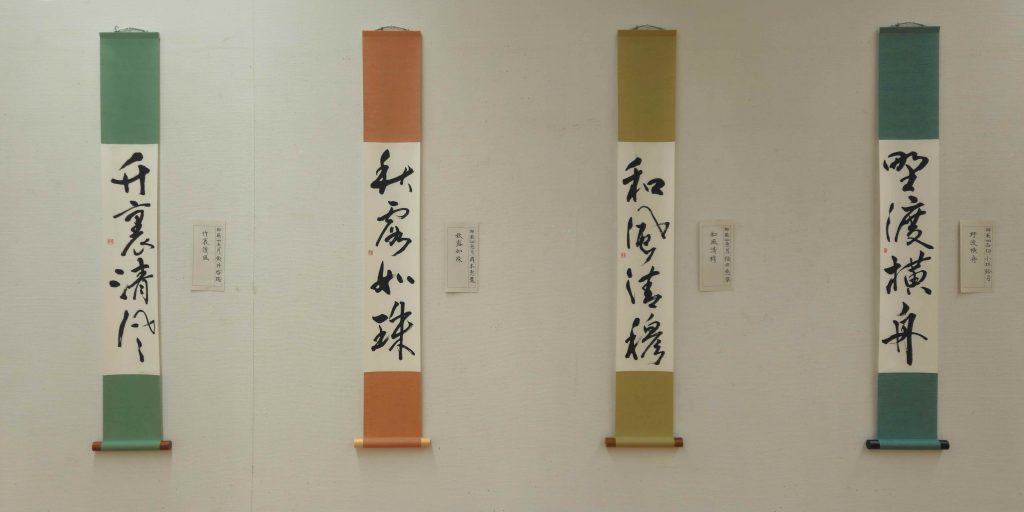 竹裏清風
竹裏清風
秋露如珠
秋露如珠
和風清穆
和風清穆
野渡横舟
野渡横舟